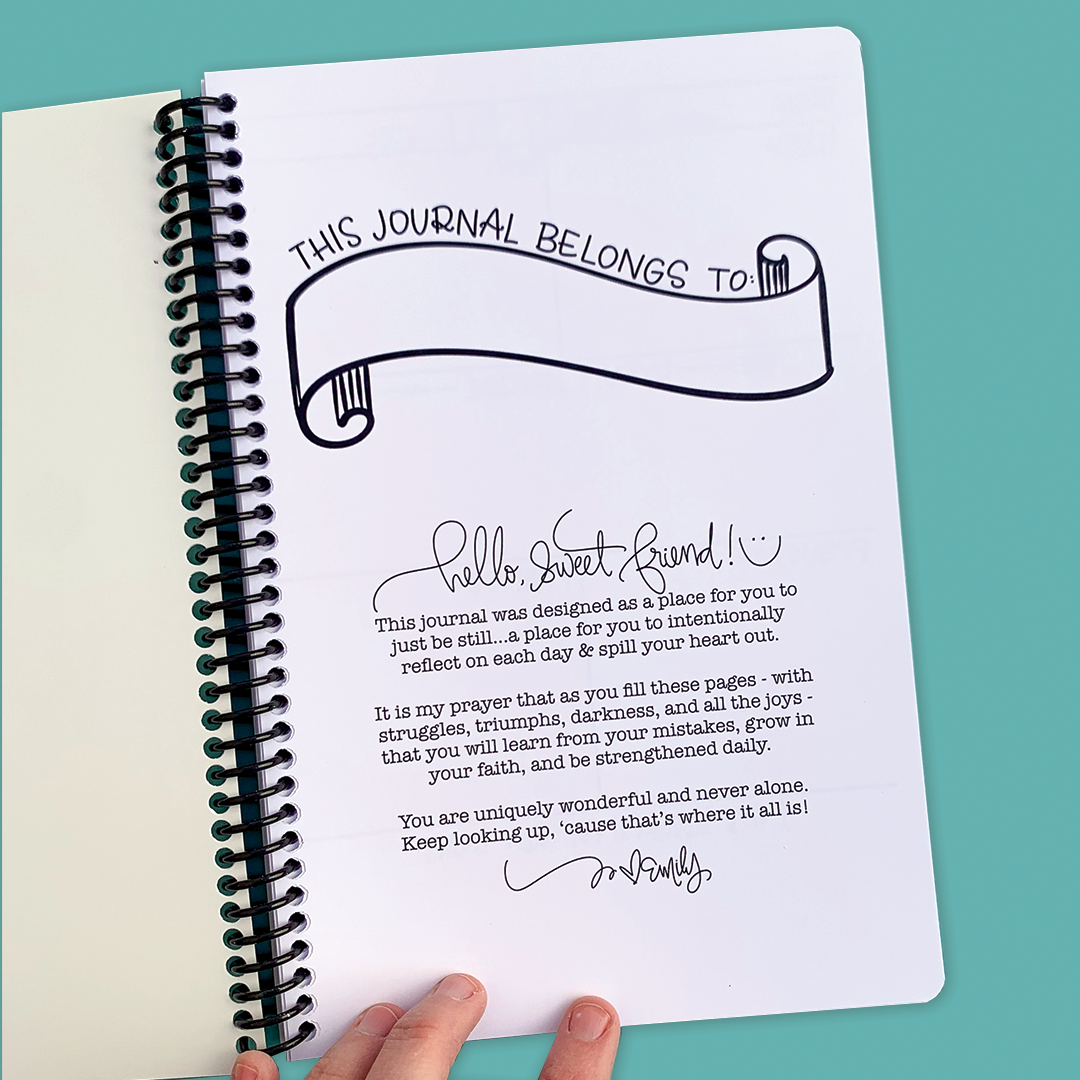 THIS JOURNAL BELONGS TO:
hello, sweet friend!
This journal was designed as a place for you to
just be still...a place for you to intentionally
reflect on each day & spill your heart out.
It is my prayer that as you fill these pages - with
struggles, triumphs, darkness, and all the joys -
that you will learn from your mistakes, grow in
your faith, and be strengthened daily.
You are uniquely wonderful and never alone.
Keep looking up, ‘cause that’s where it all is!
Emily